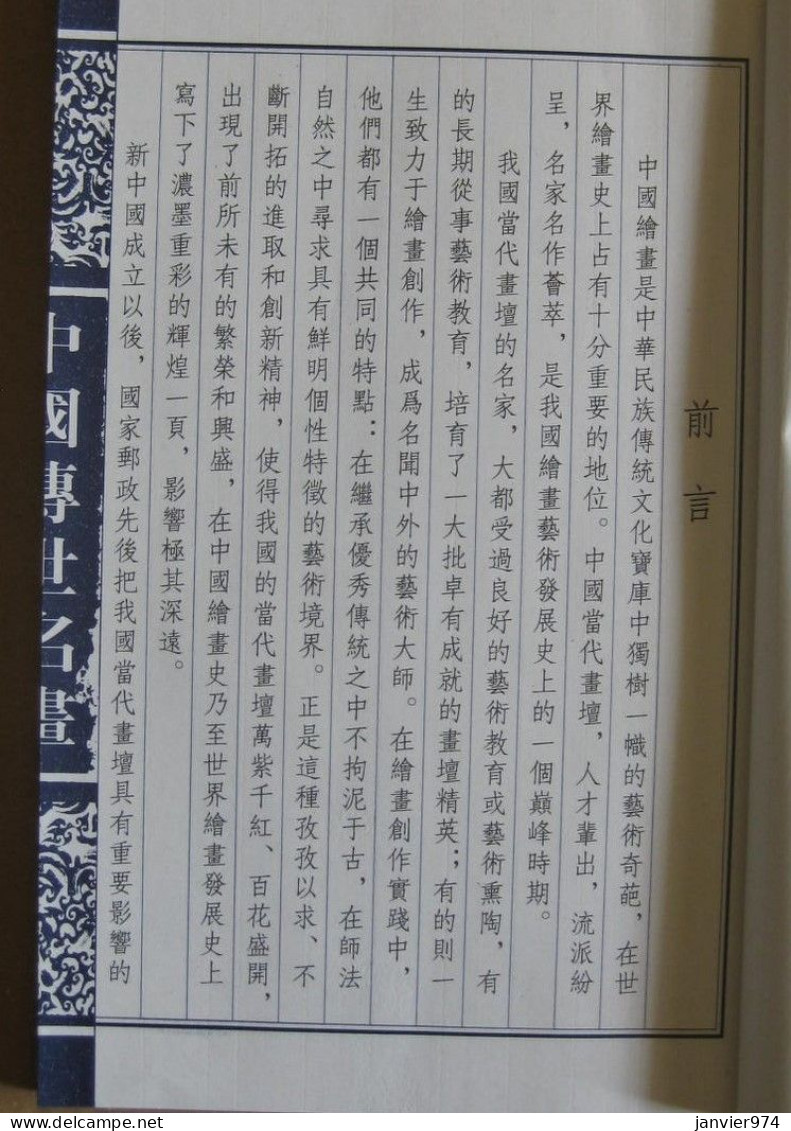 前言
中國繪畫是中華民族傳統文化寶庫中獨樹一幟的藝術奇葩，在世
界繪畫史上占有十分重要的地位。中國當代畫壇，人才輩出，流派紛
呈，名家名作薈萃，是我國繪畫藝術發展史上的一個巔峰時期。
我國當代畫壇的名家，大都受過良好的藝術教育或藝術熏陶，有
的長期從事藝術教育，培育了一大批卓有成就的畫壇精英；有的則一
生致力于繪畫創作，成爲名聞中外的藝術大師。在繪畫創作實踐中，
他們都有一個共同的特點：在繼承優秀傳統之中不拘泥于古，在師法
自然之中尋求具有鮮明個性特徵的藝術境界。正是這種孜孜以求、不
斷開拓的進取和創新精神，使得我國的當代畫壇萬紫千紅、百花盛開，
出現了前所未有的繁榮和興盛，在中國繪畫史乃至世界繪畫發展史上
寫下了濃墨重彩的輝煌一頁，影響極其深遠。
新中國成立以後，國家郵政先後把我國當代畫壇具有重要影響的
中國傳世名畫
janvier974